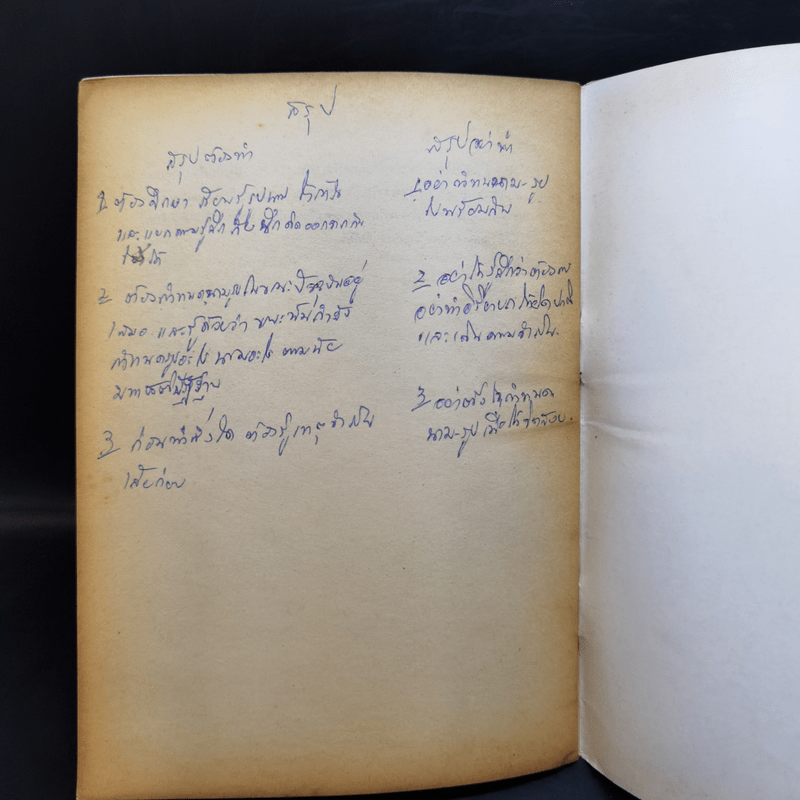 สรุป
สรุปต้องทำ
1 ต้องศึกษา เรียนรู้รูปนาม ให้เข้าใจ
และแยกความรู้สึก กับ นึกคิดออกจากกัน
ให้ได้
2 ต้องกำหนดนามรูปในขณะปัจจุบันอยู่
เสมอ และรู้ด้วยว่า ขณะนั้นกำลัง
กำหนดรูปอะไร นามอะไร ตามนัย
มหาสติปัฏฐาน
3 ก่อนทำสิ่งใด ต้องรู้เหตุจำเป็น
เสียก่อน
สรุปอย่าทำ
1 อย่ากำหนดนาม-รูป
ไปพร้อมกัน
2 อย่าให้รู้สึกว่าต้อง
อย่าทำอิริยาบถ
และเดินตามจำเป็น.
3 อย่าตั้งใจกำหนด
นาม-รูป เพื่อให้